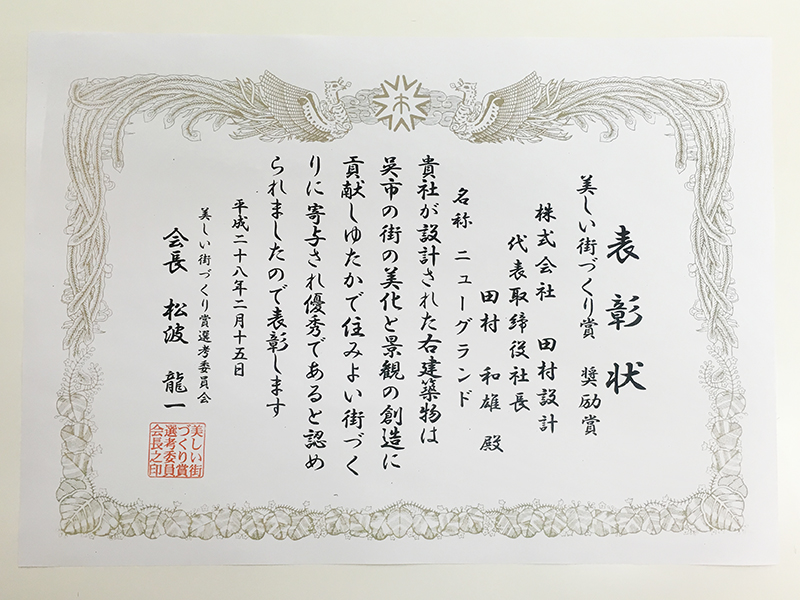 表彰状
美しい街づくり賞 奨励賞
株式会社 田村設計
代表取締役社長
田村 和雄 殿
名称 ニューグランド
貴社が設計された右建築物は
呉市の街の美化と景観の創造に
貢献しゆたかで住みよい街づく
りに寄与され優秀であると認め
られましたので表彰します
平成二十八年二月十五日
美しい街づくり賞選考委員会
会長 松波 龍一
美しい街
づくり賞
選考委員
会長之印